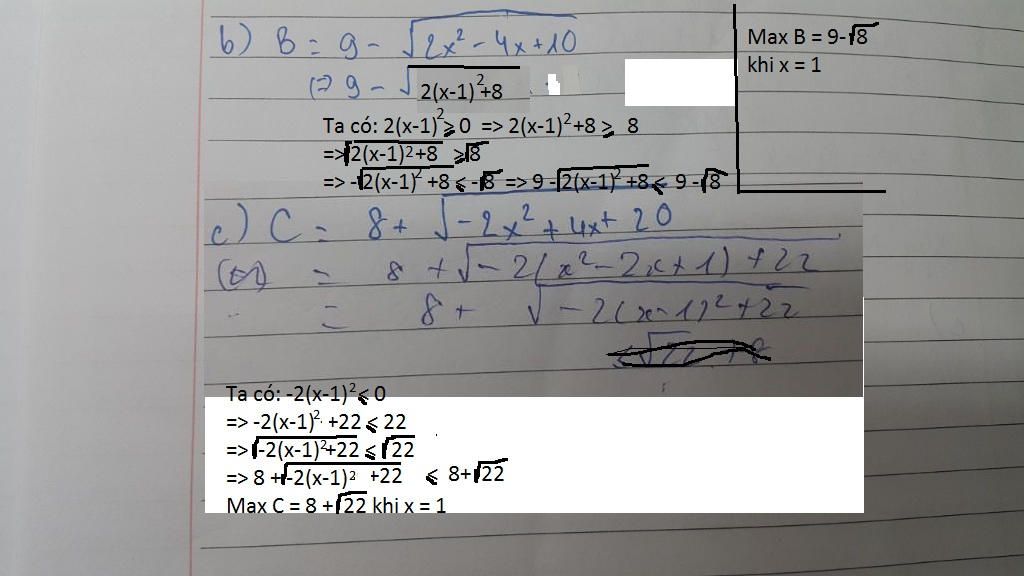 b) B = 9 - √2x² - 4x + 10
(=) 9 - √2(x-1)²+8
Ta có: 2(x-1)²⩾0 => 2(x-1)²+8 ⩾ 8
=>√2(x-1)2+8 ⩾√8
=> -√2(x-1)² +8 ⩽ -√8 => 9 -√2(x-1)² +8 ⩽ 9 -√8
Max B = 9-√8
khi x = 1
c) C = 8 + √-2x² + 4x + 20
= 8 + √-2(x² - 2x + 1) + 22
= 8 + √-2(x-1)² + 22
Ta có: -2(x-1)²⩽0
=> -2(x-1)² +22 ⩽ 22
=> √-2(x-1)²+22 ⩽ √22
=> 8 +√-2(x-1)² +22 ⩽ 8+√22
Max C = 8 +√22 khi x = 1